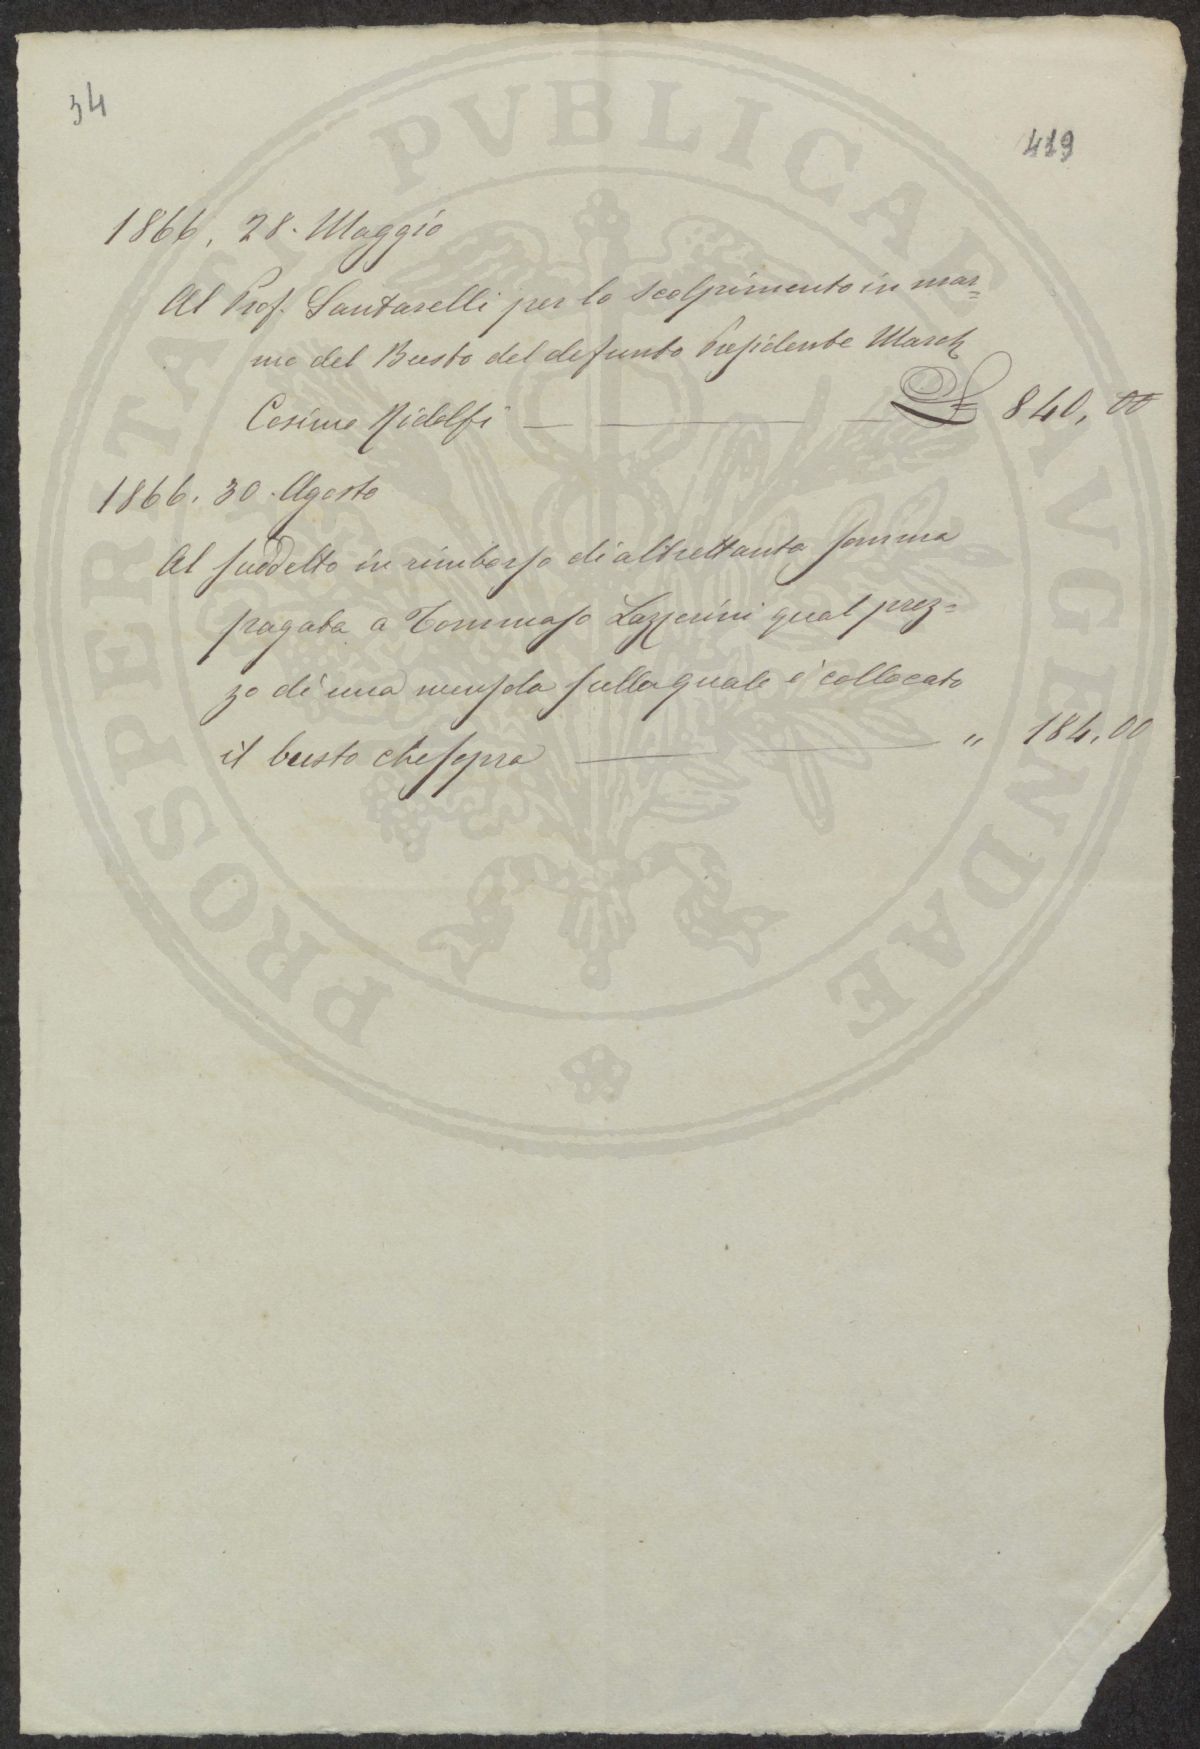 34
419
1866, 28. Maggio
Al Prof. Santarelli per lo scolpimento in mar=
mo del Busto del defunto Presidente March
Cosimo Ridolfi £ 840,00
1866. 30. Agosto
Al suddetto in rimborso di altrettanta somma
pagata a Tommaso Lazzerini qual prez=
zo di una mensola sulla quale è collocato
il busto che sopra " 184,00
PROSPERITATI PVBLICAE AVGENDAE